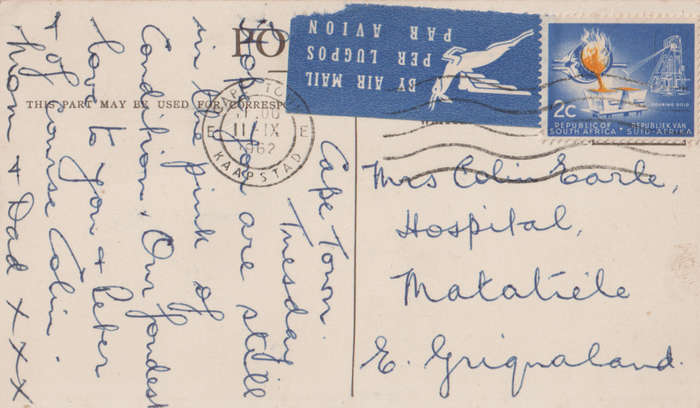 POS
THIS PART MAY BE USED FOR CORRESPO
BY AIR MAIL
PER LUGPOS
PAR AVION
2c
POURING GOLD
REPUBLIC OF SOUTH AFRICA
REPUBLIEK VAN SUID-AFRIKA
CAPE TOWN
11 IX
1962
KAAPSTAD
E E
Cape Town
Tuesday
Hope you are still
in the pink of
Condition. Our fondest
love to you & Peter
& of course Colin.
Mom & Dad XXX
Mrs Colin Earle,
Hospital,
Matatiele
E. Griqualand.